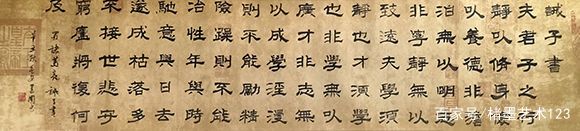 誡子書
夫君子之行
靜以修身儉
以養德非澹
泊無以明志
非寧靜無以
致遠夫學須
靜也才須學
也非學無以
廣才非志無
以成學慆慢
則不能勵精
險躁則不能
冶性年與時
馳意與日去
遂成枯落多
不接世悲守
窮廬將復何
及
右諸葛亮誡子書
百家号/楮墨艺术123